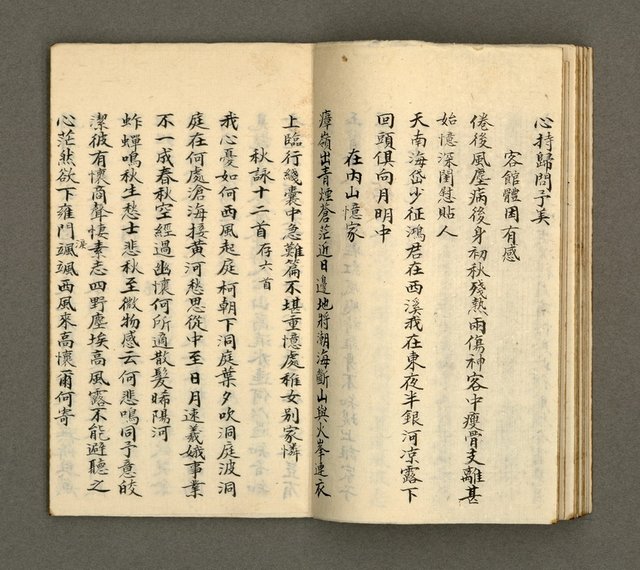 心持歸問子美
客館體因有感
倦後風塵病後身初秋殘熱雨傷神客中瘦骨支離甚
始憶深閨慰貼人
天南海岱少征鴻君在西溪我在東夜半銀河涼露下
回頭俱向月明中
在內山憶家
瘴嶺出青煙蒼茫近日邊地將潮海斷山與火峯連衣
上臨行綫囊中急難篇不堪重憶處稚女別家憐
秋詠十二首存六首
我心憂如何西風起庭柯朝下洞庭葉夕吹洞庭波洞
庭在何處滄海接黃河愁思從中至日月速羲娥事業
不一成春秋空經過幽懷何所適散髮晞陽河
蚱蟬鳴秋生愁士悲秋至微物感云何悲鳴同予意皎
潔彼有懷商聲悽素志四野塵埃高風露不能避聽之
心茫然欲下雍門淚
颯颯西風來高懷爾何寄